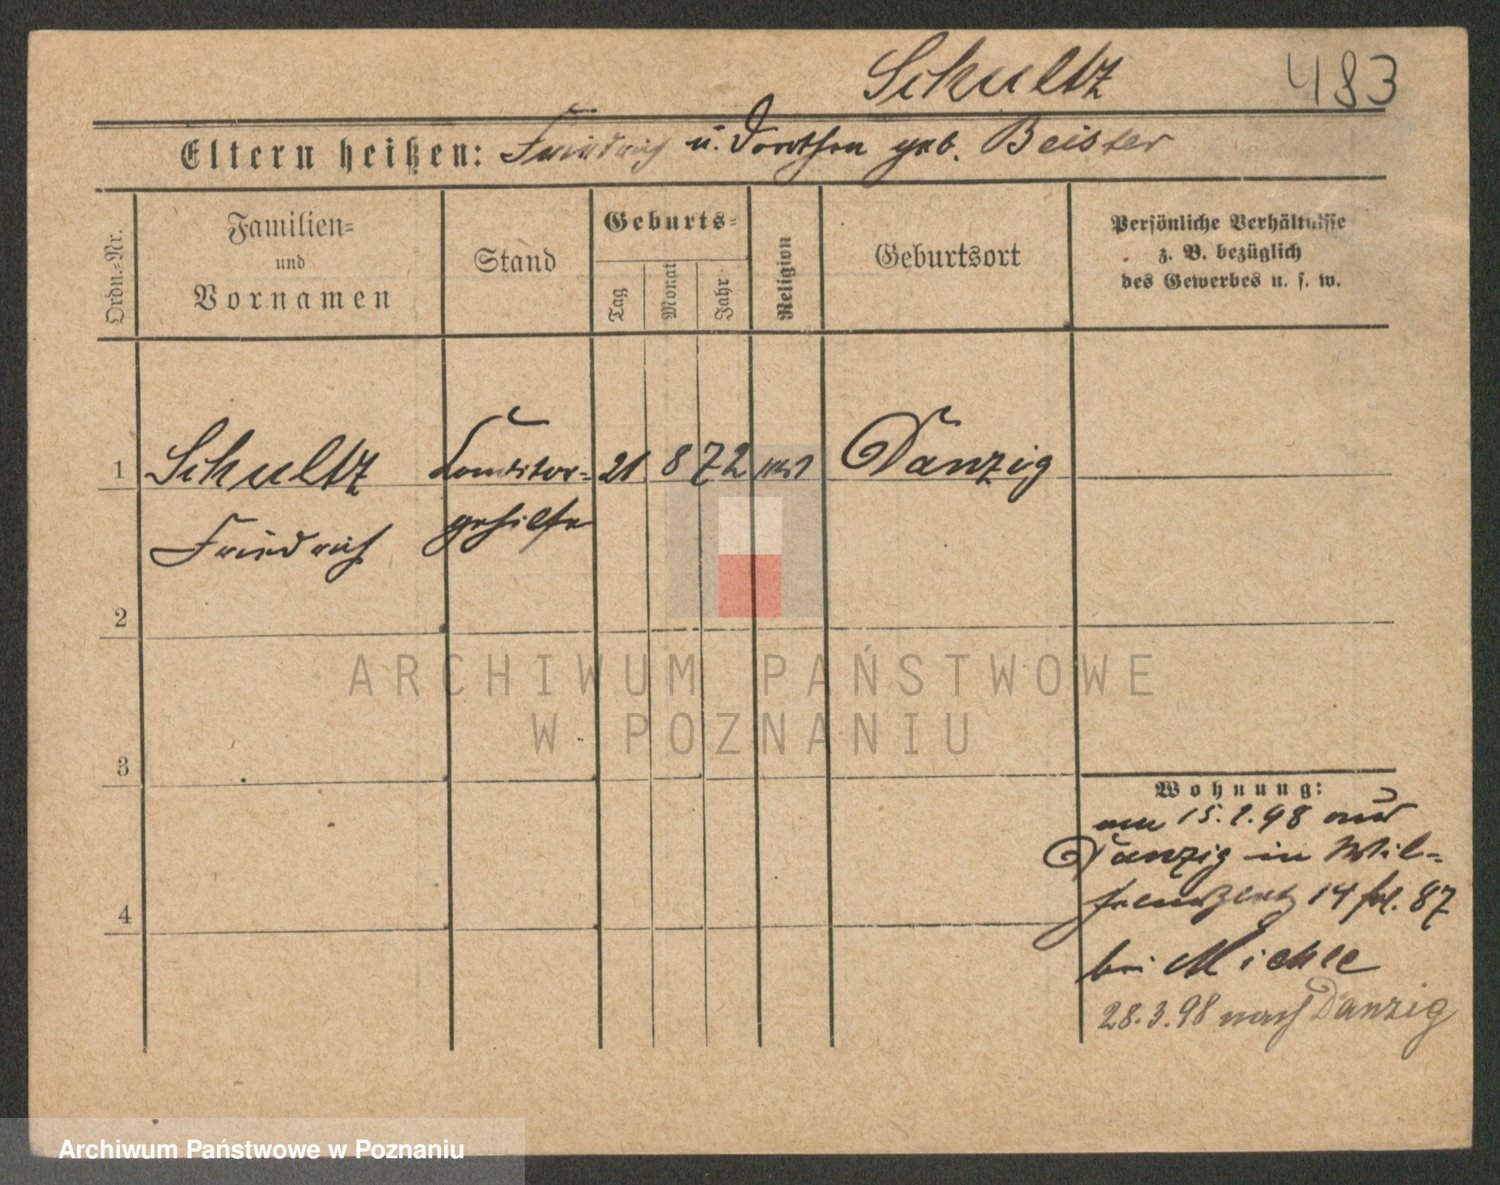 Schultz 483
Eltern heißen: Friedrich u. Dorothea geb. Beister
Ordn.-Nr.
Familien-
und
Vornamen
Stand
Geburts-
Tag
Monat
Jahr
Religion
Geburtsort
Persönliche Verhältnisse
z. B. bezüglich
des Gewerbes u. s. w.
1 Schultz Konditor- 21 8 72 Danzig
Friedrich gehilfe
2
3
4
Wohnung:
am 15.2.98 aus
Danzig in Wil-
14 87
bei Michle
28.3.98 nach Danzig
ARCHIWUM PAŃSTWOWE
W POZNANIU
Archiwum Państwowe w Poznaniu